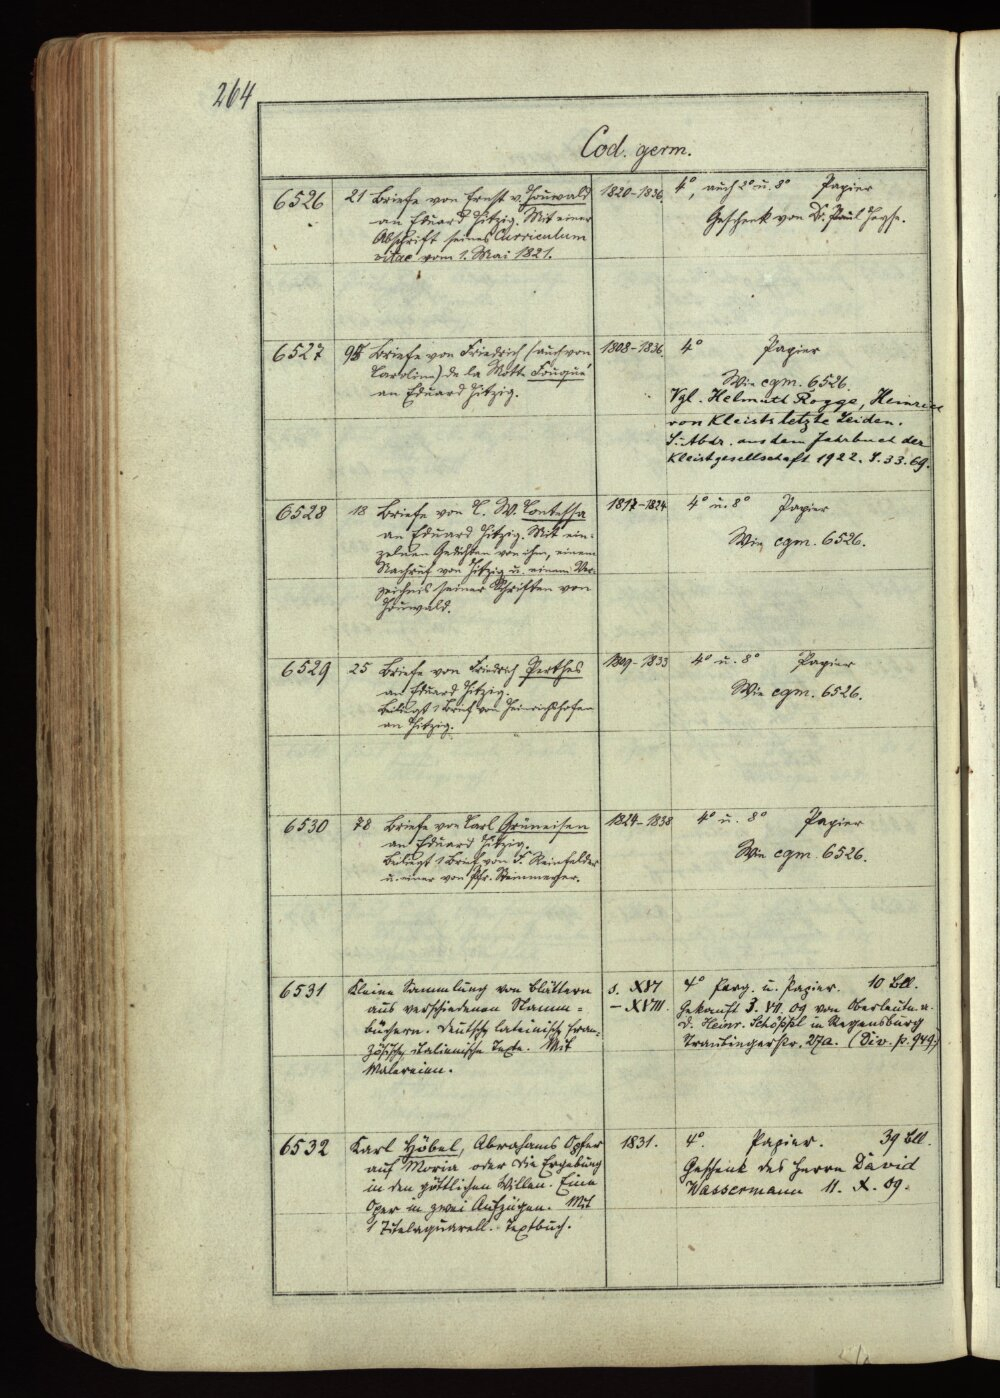 264
Cod. germ.
6526
21 Briefe von Ernst v. Houwald
an Eduard Hitzig. Mit einer
Abschrift seines Curriculum
vitae vom 1. Mai 1821.
1820-1836.
4°, auch 2° u. 8° Papier
Geschenk von Dr. Paul Heyse.
6527
95 Briefe von Friedrich (auch von
Caroline) de la Motte Fouqué
an Eduard Hitzig.
1808-1836.
4° Papier
Wie cgm. 6526.
Vgl. Helmuth Rogge, Heinrich
von Kleists letzte Leiden.
S. Abdr. aus dem Jahrbuch der
Kleistgesellschaft 1922. S. 33. 69.
6528
18 Briefe von C. W. Contessa
an Eduard Hitzig. Mit ein-
zelnen Gedichten von ihm, einem
Nachruf von Hitzig u. einem Ver-
zeichnis seiner Schriften von
Houwald.
1817-1824
4° u. 8° Papier
Wie cgm. 6526.
6529
25 Briefe von Friedrich Perthes
an Eduard Hitzig.
Beiliegt 1 Brief von Heinrichshofen
an Hitzig.
1809-1833
4° u. 8° Papier
Wie cgm. 6526.
6530
78 Briefe von Carl Grüneisen
an Eduard Hitzig.
Beiliegt 1 Brief von F. Reinfelder
u. einer von Pfr. Steinmeyer.
1824-1838
4° u. 8° Papier
Wie cgm. 6526.
6531
Kleine Sammlung von Blättern
aus verschiedenen Stamm=
büchern. Deutsche lateinische fran-
zösische italienische Texte. Mit
Malereien.
s. XVI
- XVIII.
4° Perg. u. Papier. 10 Bll.
Gekauft 3. VII. 09 von Oberleutn. a.
D. Heinr. Schöppl in Regensburg
Straubingerstr. 27a. (Div. p. 949)
6532
Karl Höbel, Abrahams Opfer
auf Moria oder die Ergebung
in den göttlichen Willen. Eine
Oper in zwei Aufzügen. Mit
1 Titelaquarell. Textbuch.
1831.
4°. Papier. 39 Bll.
Geschenk des Herrn David
Wassermann 11. X. 09.